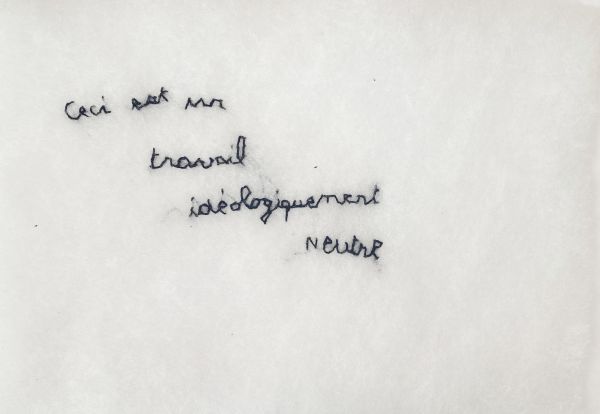 Ceci est un
travail
idéologiquement
Neutre